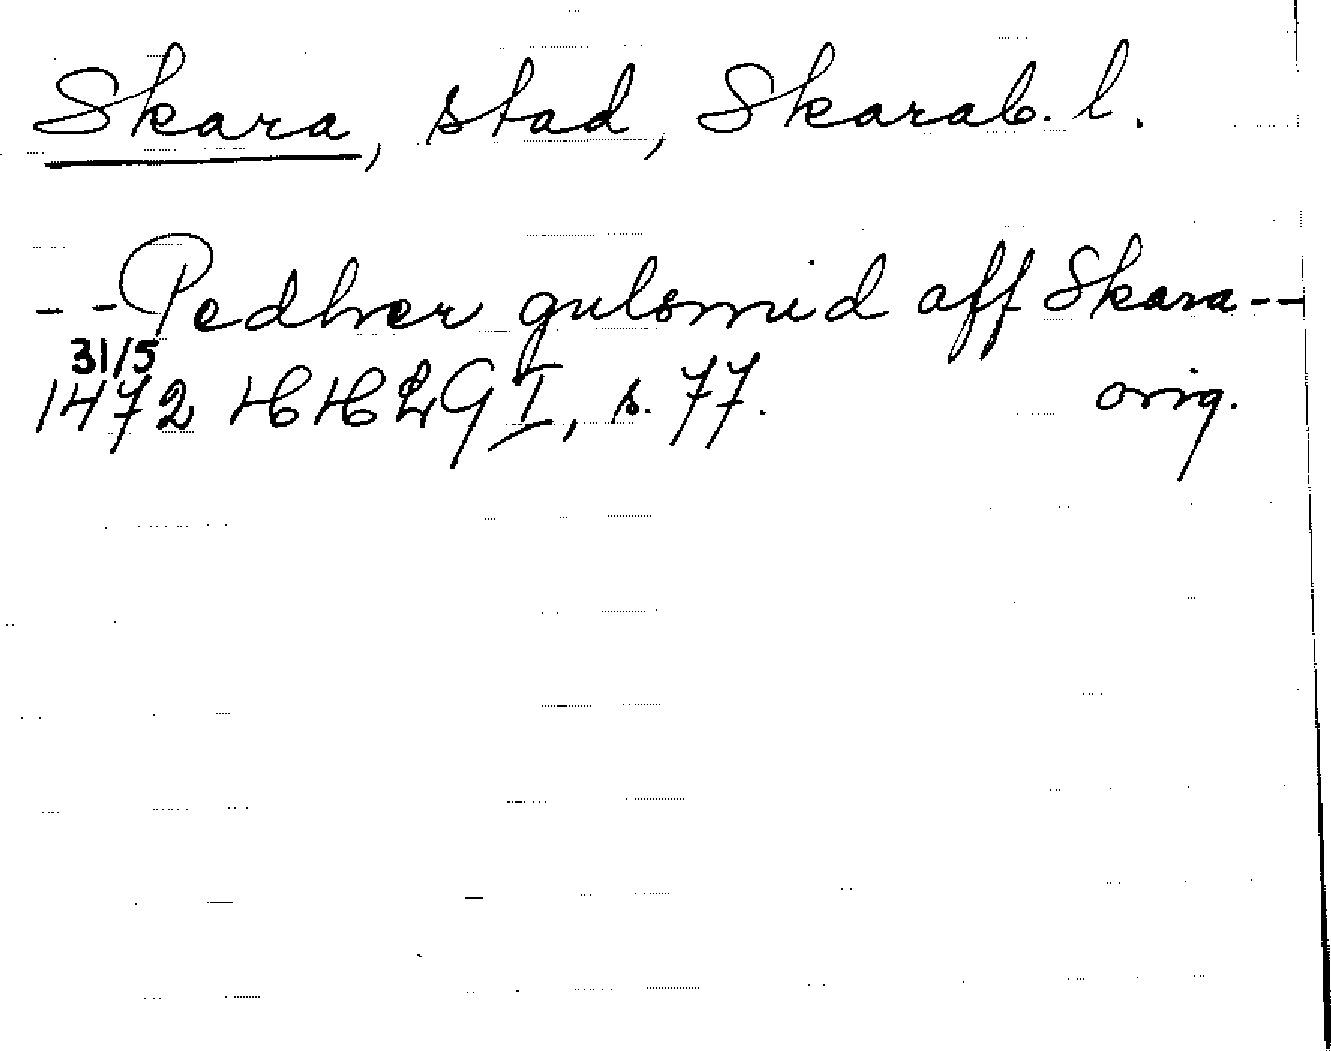 Skara, stad, Skarab. l.
- - Pedher gulsmid aff Skara - -
31/5
1472 HHLG I, s. 77. orig.